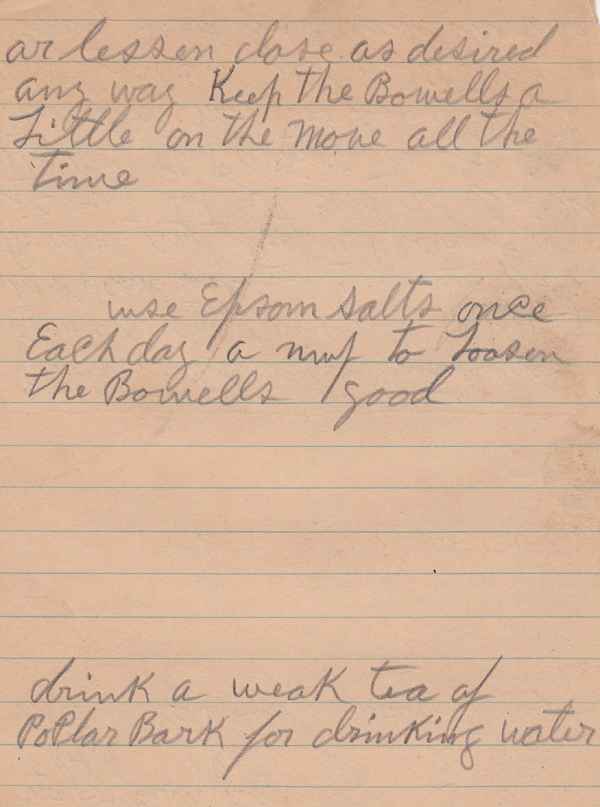 or lessen dose as desired
any way Keep the Bowells a
Little on the move all the
time
use Epsom salts once
Each day a nuf to Loosen
the Bowells good
drink a weak tea of
PoPlar Bark for drinking water